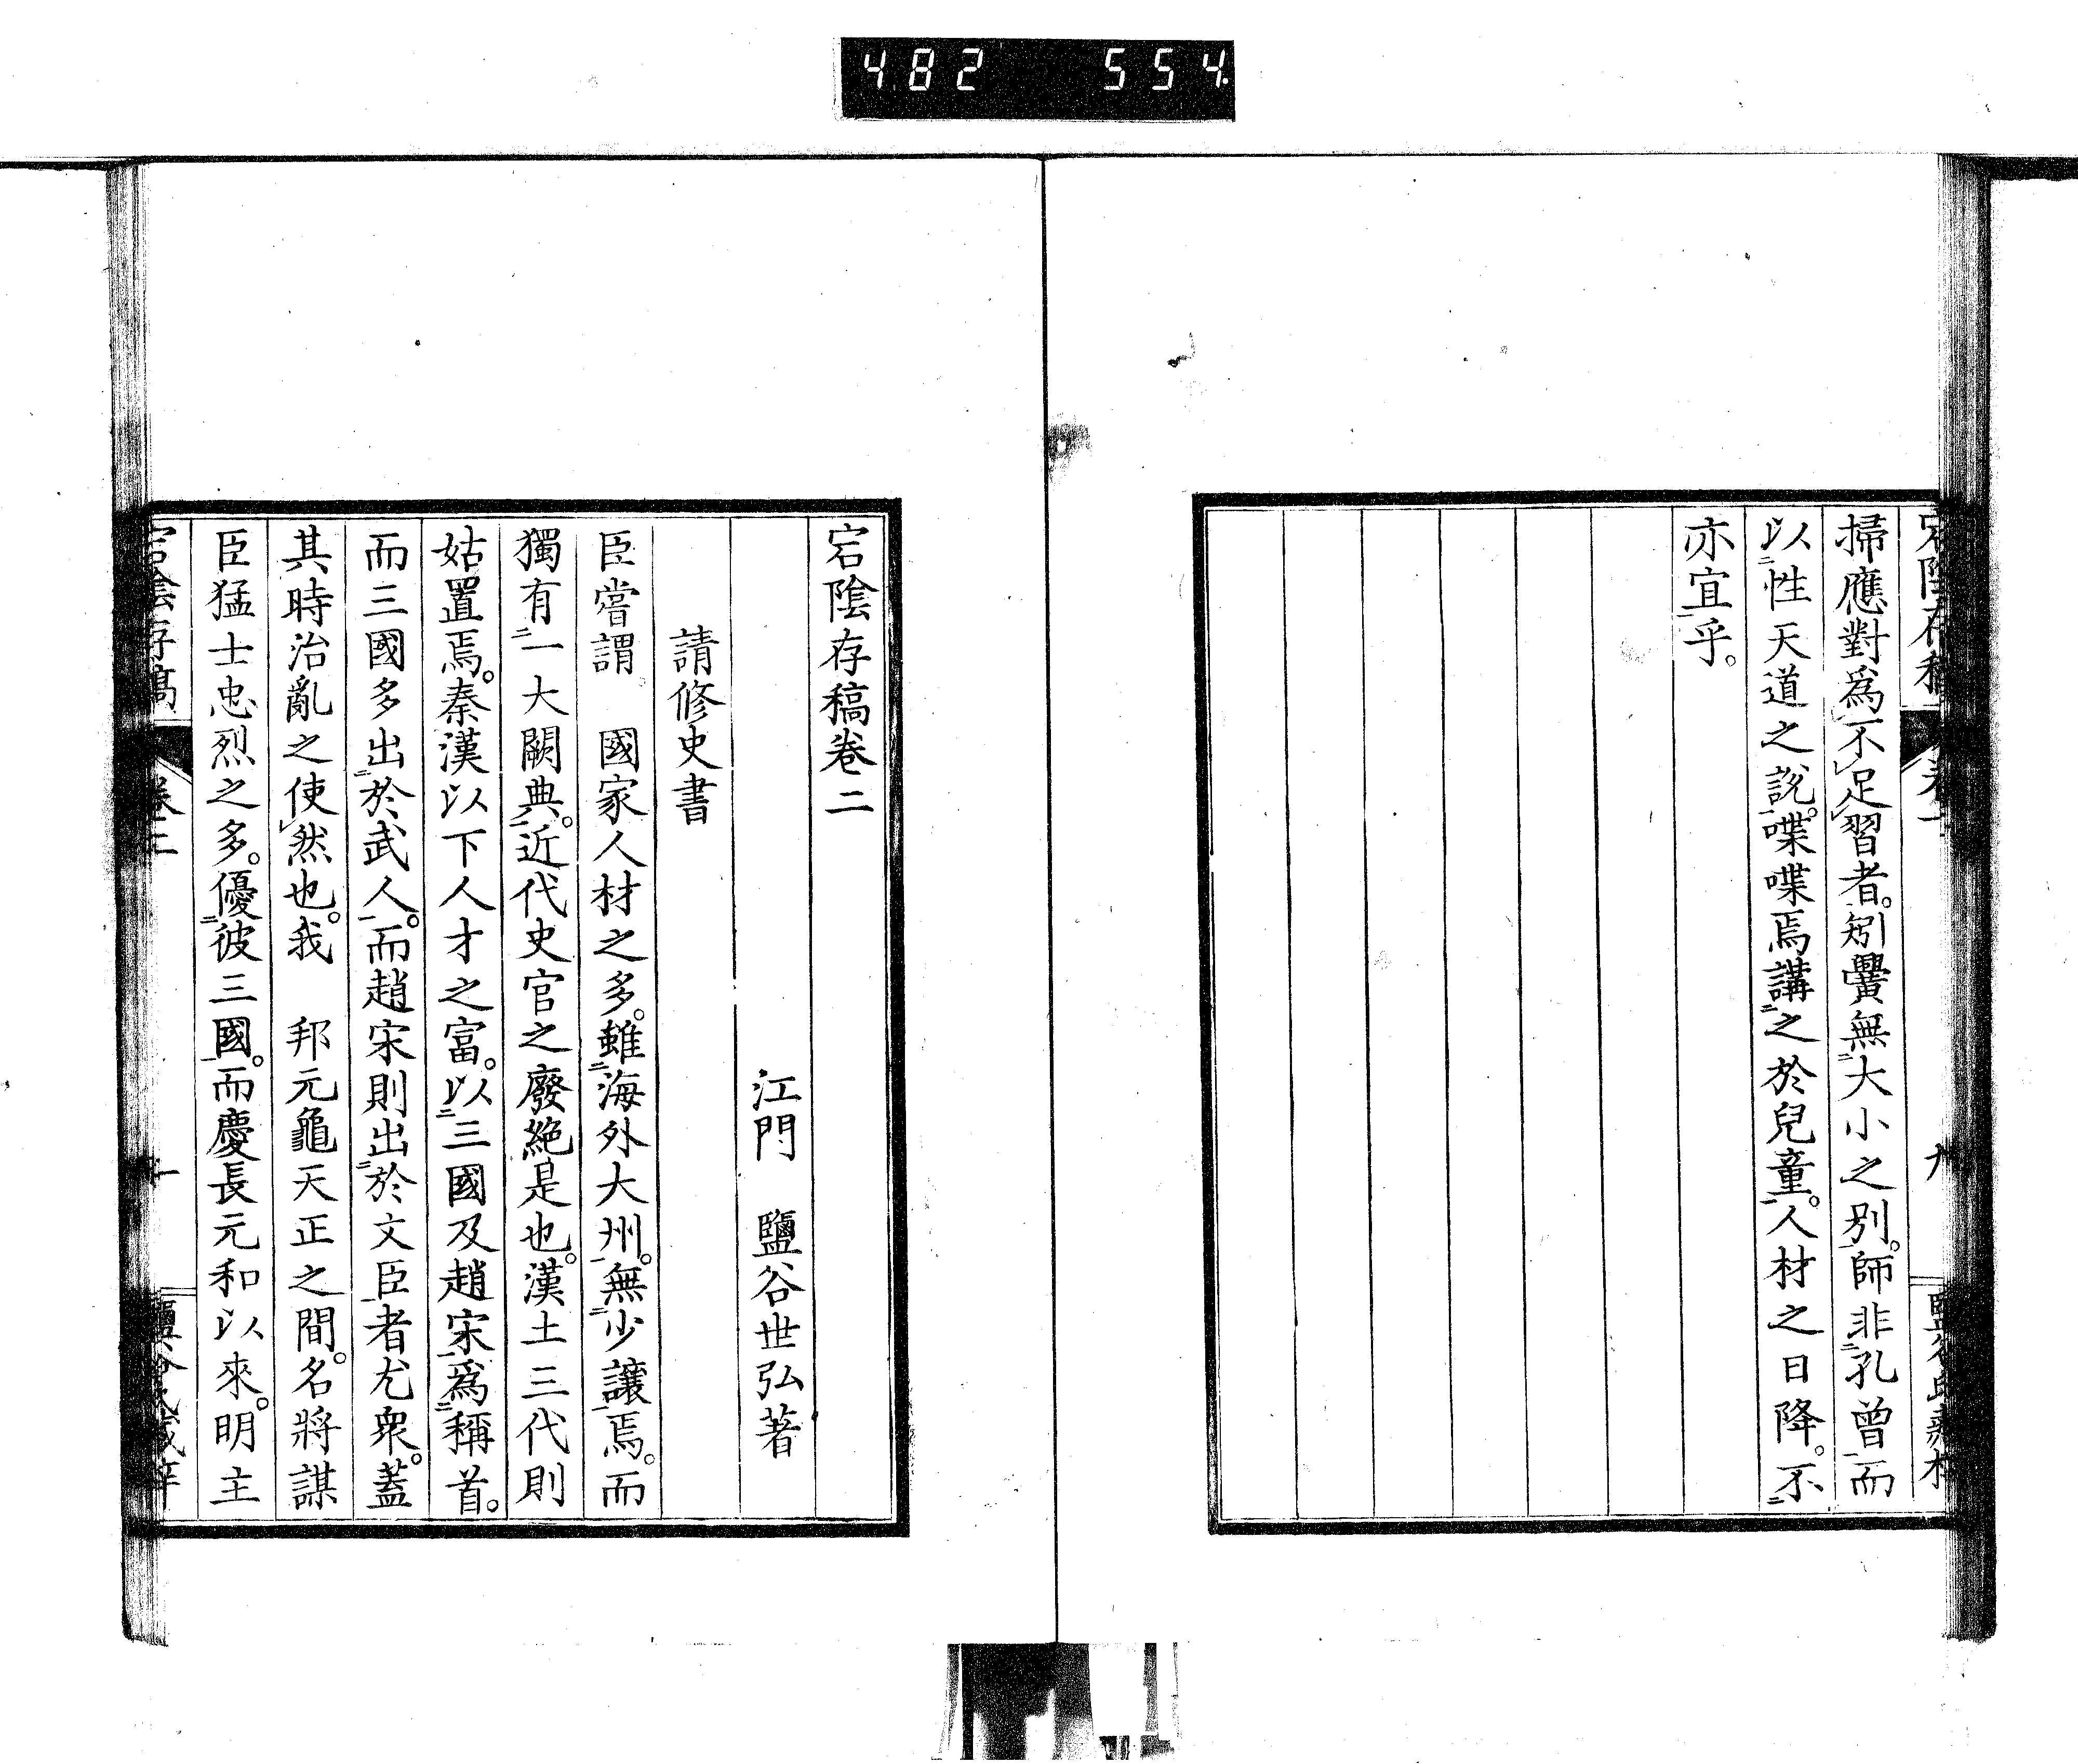 482 554
掃應對爲不足習者。矧黌無大小之別。師非孔曾而
以性天道之說。喋喋焉講之於兒童。人材之日降。不
亦宜乎。
宕陰存稿卷二
江門 鹽谷世弘著
請修史書
臣嘗謂 國家人材之多。雖海外大州。無少讓焉。而
獨有一大闕典。近代史官之廢絶是也。漢土三代則
姑置焉。秦漢以下人才之富。以三國及趙宋爲稱首。
而三國多出於武人。而趙宋則出於文臣者尤衆。蓋
其時治亂之使然也。我 邦元龜天正之間。名將謀
臣猛士忠烈之多。優彼三國。而慶長元和以來。明主
宕陰存稿 卷二 一